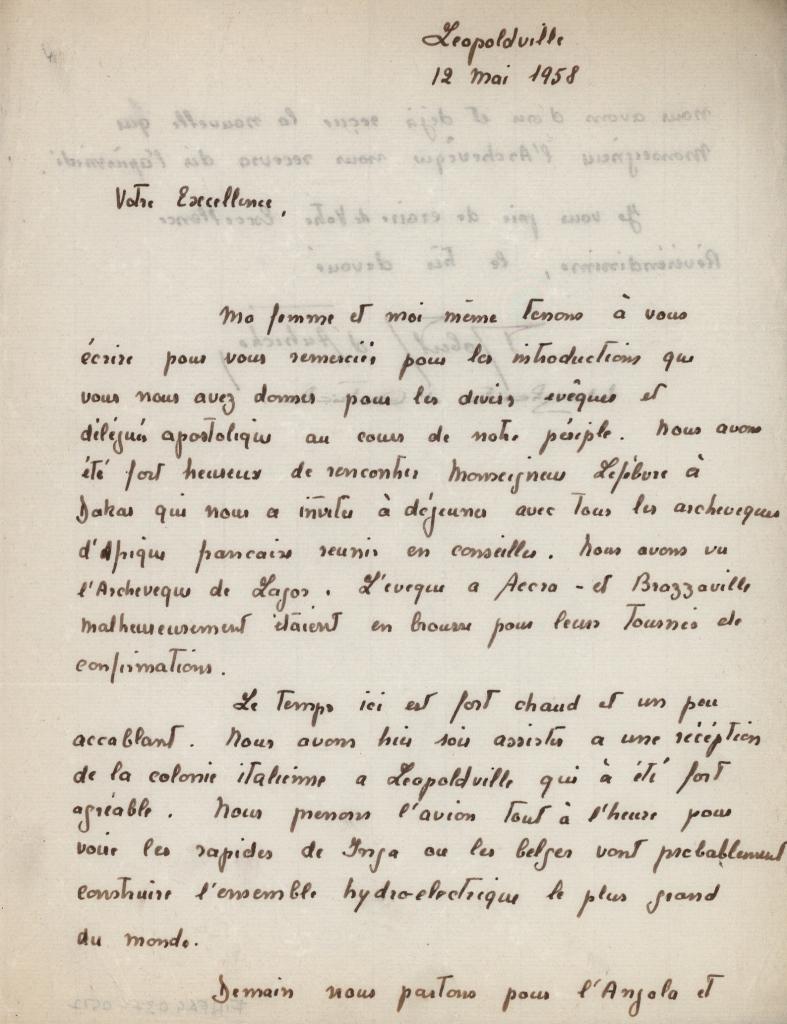 Leopoldville
12 Mai 1958
Votre Excellence,
Ma femme et moi même tenons à vous
écrire pour vous remerciér pour les introductions que
vous nous avez donner pour les divers evêques et
délégués apostolique au cours de notre périple. Nous avons
été fort heureux de rencontrer Monseigneur Lefèbvre à
Dakar qui nous a invités à déjeuner avec tous les archeveques
d'Afrique francaise reunir en conseilles. Nous avons vu
l'Archeveque de Lagos. L'eveque a Accra - et Brazzaville
malheureusement étaient en brousse pour leurs tournés de
confirmations.
Le temps ici est fort chaud et un peu
accablant. Nous avons hier soir assister a une récéption
de la colonie italienne a Leopoldville qui à été fort
agréable. Nous prenons l'avion tout à l'heure pour
voire les rapides de Inga ou les belges vont probablement
construire l'ensemble hydro-electrique le plus grand
du monde.
Demain nous partons pour l'Angola et